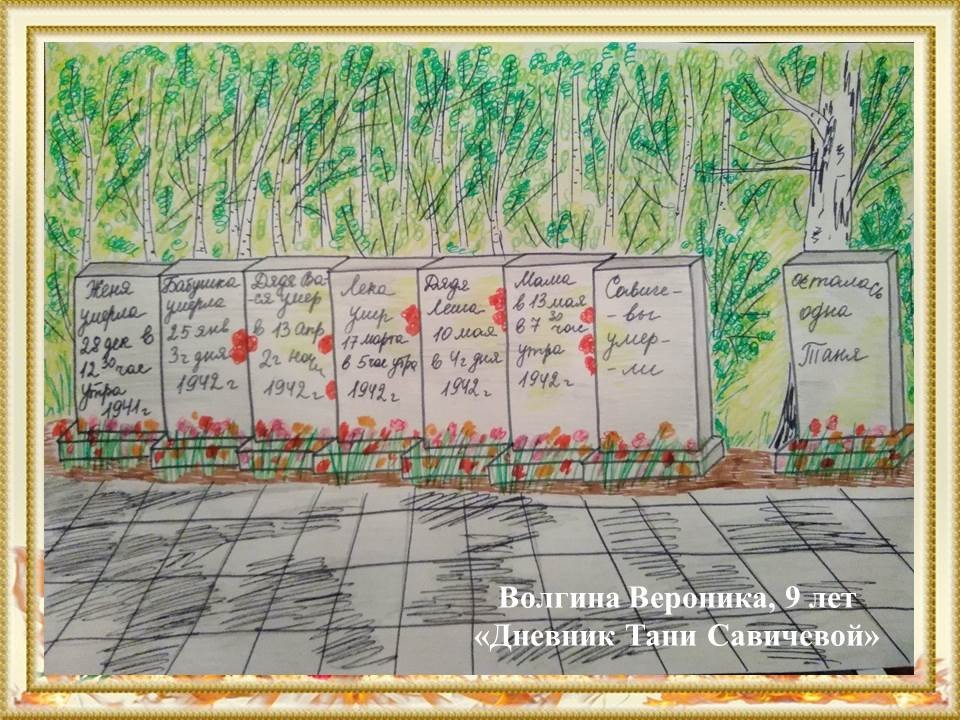 Женя
умерла
28 дек в
12 30 час
утра
1941 г
Бабушка
умерла
25 янв
3 г дня
1942 г
Дядя Ва-
-ся умер
в 13 апр
2 г ночи
1942 г
Лека
умер
17 марта
в 5 час утра
1942 г
Дядя
Леша
10 мая
в 4 г дня
1942 г
Мама
в 13 мая
в 7 30 час
утра
1942 г
Савиче-
-вы
умер-
-ли
осталась
одна
Таня
Волгина Вероника, 9 лет
«Дневник Тани Савичевой»